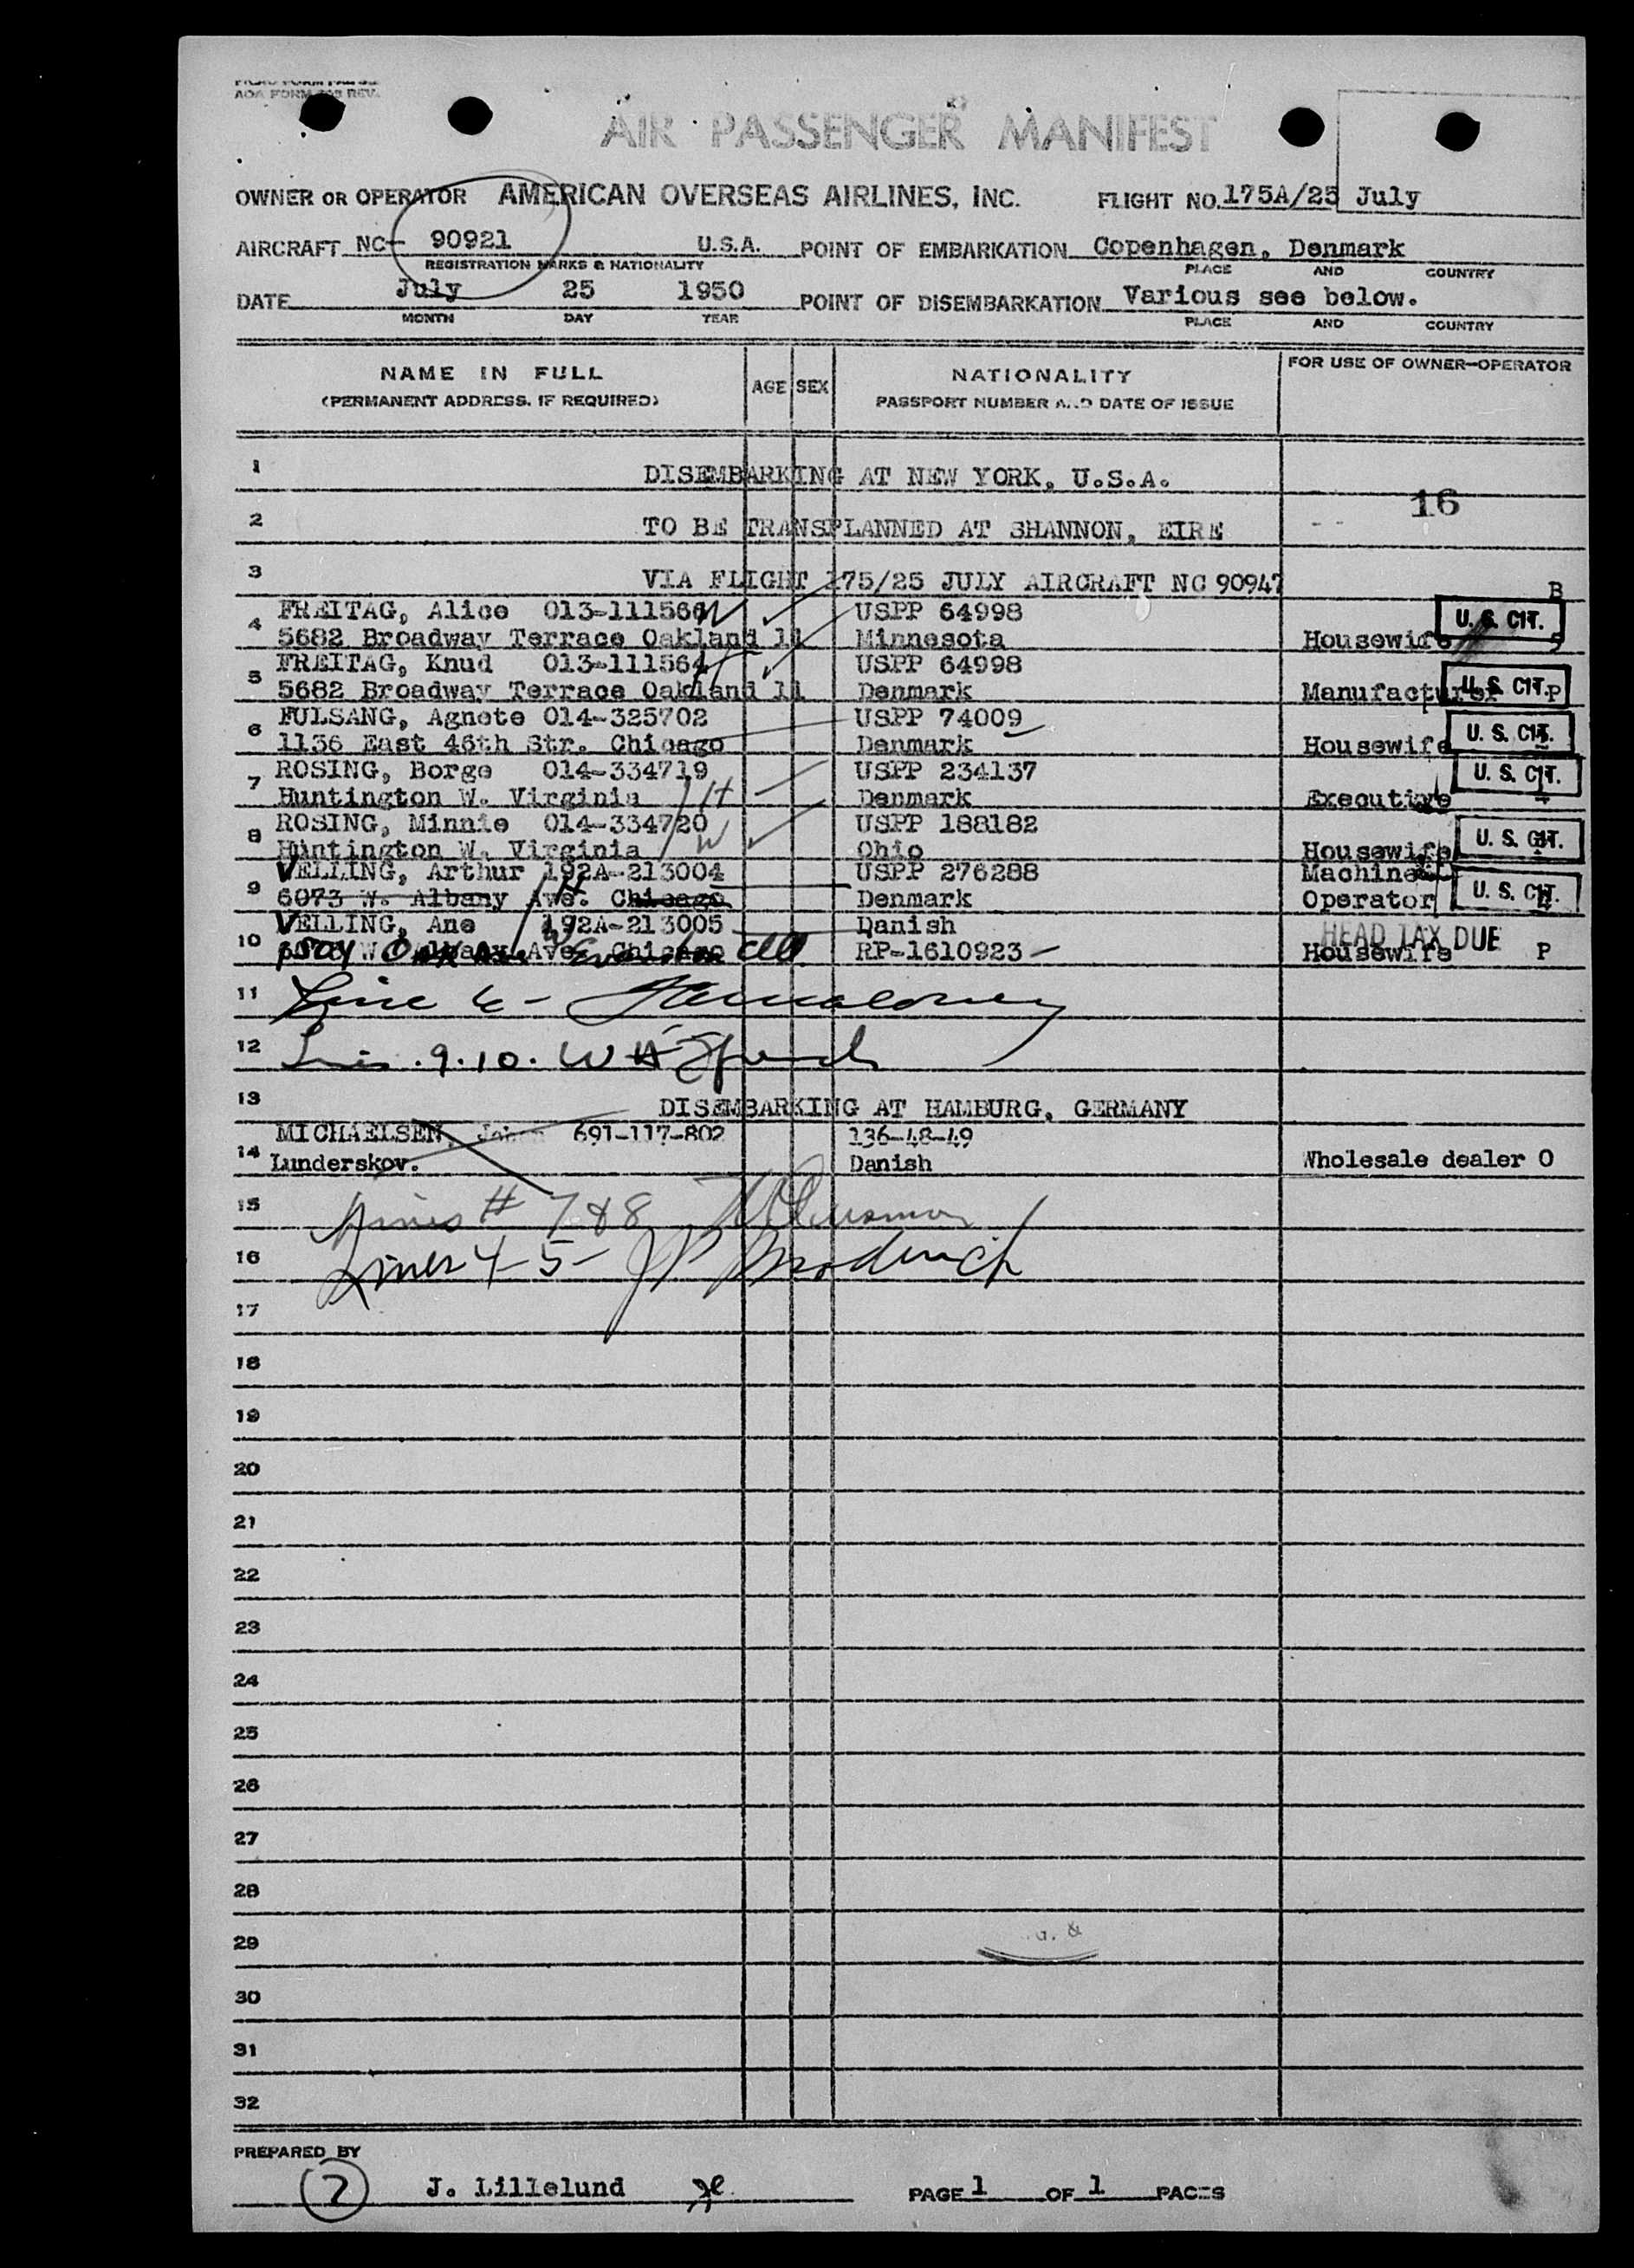 AOA FORM REV.
AIR PASSENGER MANIFEST
OWNER OR OPERATOR AMERICAN OVERSEAS AIRLINES, INC. FLIGHT NO. 175A/25 July
AIRCRAFT NC- 90921 U.S.A. POINT OF EMBARKATION Copenhagen, Denmark
REGISTRATION MARKS & NATIONALITY PLACE AND COUNTRY
DATE July 25 1950 POINT OF DISEMBARKATION Various see below.
MONTH DAY YEAR PLACE AND COUNTRY
NAME IN FULL AGE SEX NATIONALITY FOR USE OF OWNER-OPERATOR
(PERMANENT ADDRESS, IF REQUIRED) PASSPORT NUMBER AND DATE OF ISSUE
1 DISEMBARKING AT NEW YORK, U.S.A.
16
2 TO BE TRANSPLANNED AT SHANNON, EIRE
3 VIA FLIGHT 175/25 JULY AIRCRAFT NC 90947
B
4 FREITAG, Alice 013-111566 W USPP 64998 U. S. CIT.
5682 Broadway Terrace Oakland 11 Minnesota Housewife 5
5 FREITAG, Knud 013-111564 H USPP 64998
5682 Broadway Terrace Oakland 11 Denmark Manufacturer U. S. CIT. P
6 FULSANG, Agnete 014-325702 USPP 74009
1136 East 46th Str. Chicago Denmark Housewife U. S. CIT.
7 ROSING, Borge 014-334719 USPP 234137 U. S. CIT.
Huntington W. Virginia H Denmark Executive
8 ROSING, Minnie 014-334720 USPP 188182
Huntington W. Virginia W Ohio Housewife U. S. CIT.
9 VELLING, Arthur 192A-213004 USPP 276288 Machine
6073 W. Albany Ave. Chicago H Denmark Operator U. S. CIT.
10 VELLING, Ane 192A-213005 Danish HEAD TAX DUE
W. Albany Ave. Chicago RP-1610923 Housewife P
11 Line 6 -
12 9.10.
13 DISEMBARKING AT HAMBURG, GERMANY
14 MICHAELSEN, 691-117-802 136-48-49
Lunderskov. Danish Wholesale dealer O
15 Lines # 7 & 8
16 Lines 4-5- JP Broderick
17
18
19
20
21
22
23
24
25
26
27
28
29
30
31
32
PREPARED BY
7 J. Lillelund PAGE 1 OF 1 PAGES